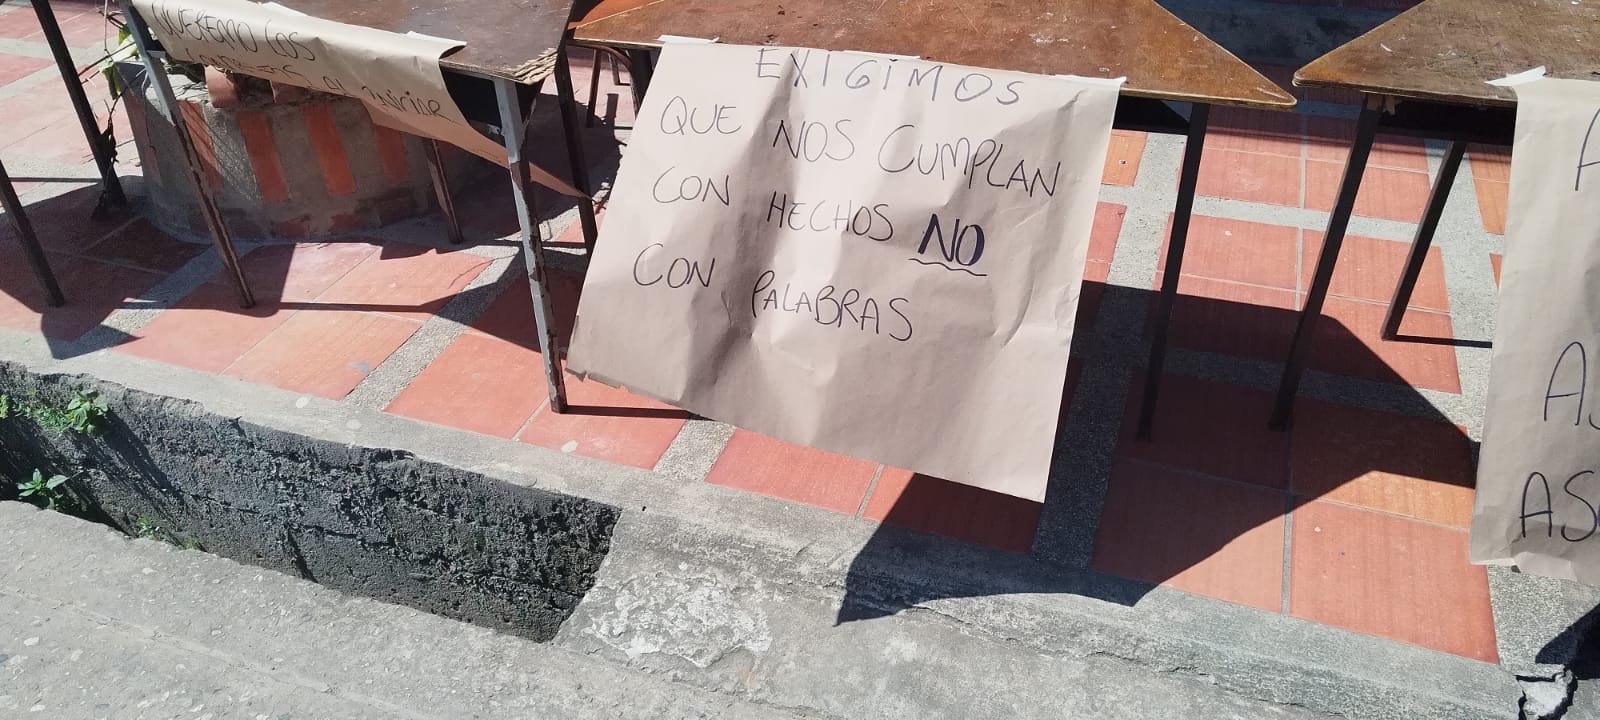 QUEREMO LOS
AL INICIAR
EXIGIMOS
QUE NOS CUMPLAN
CON HECHOS NO
CON PALABRAS